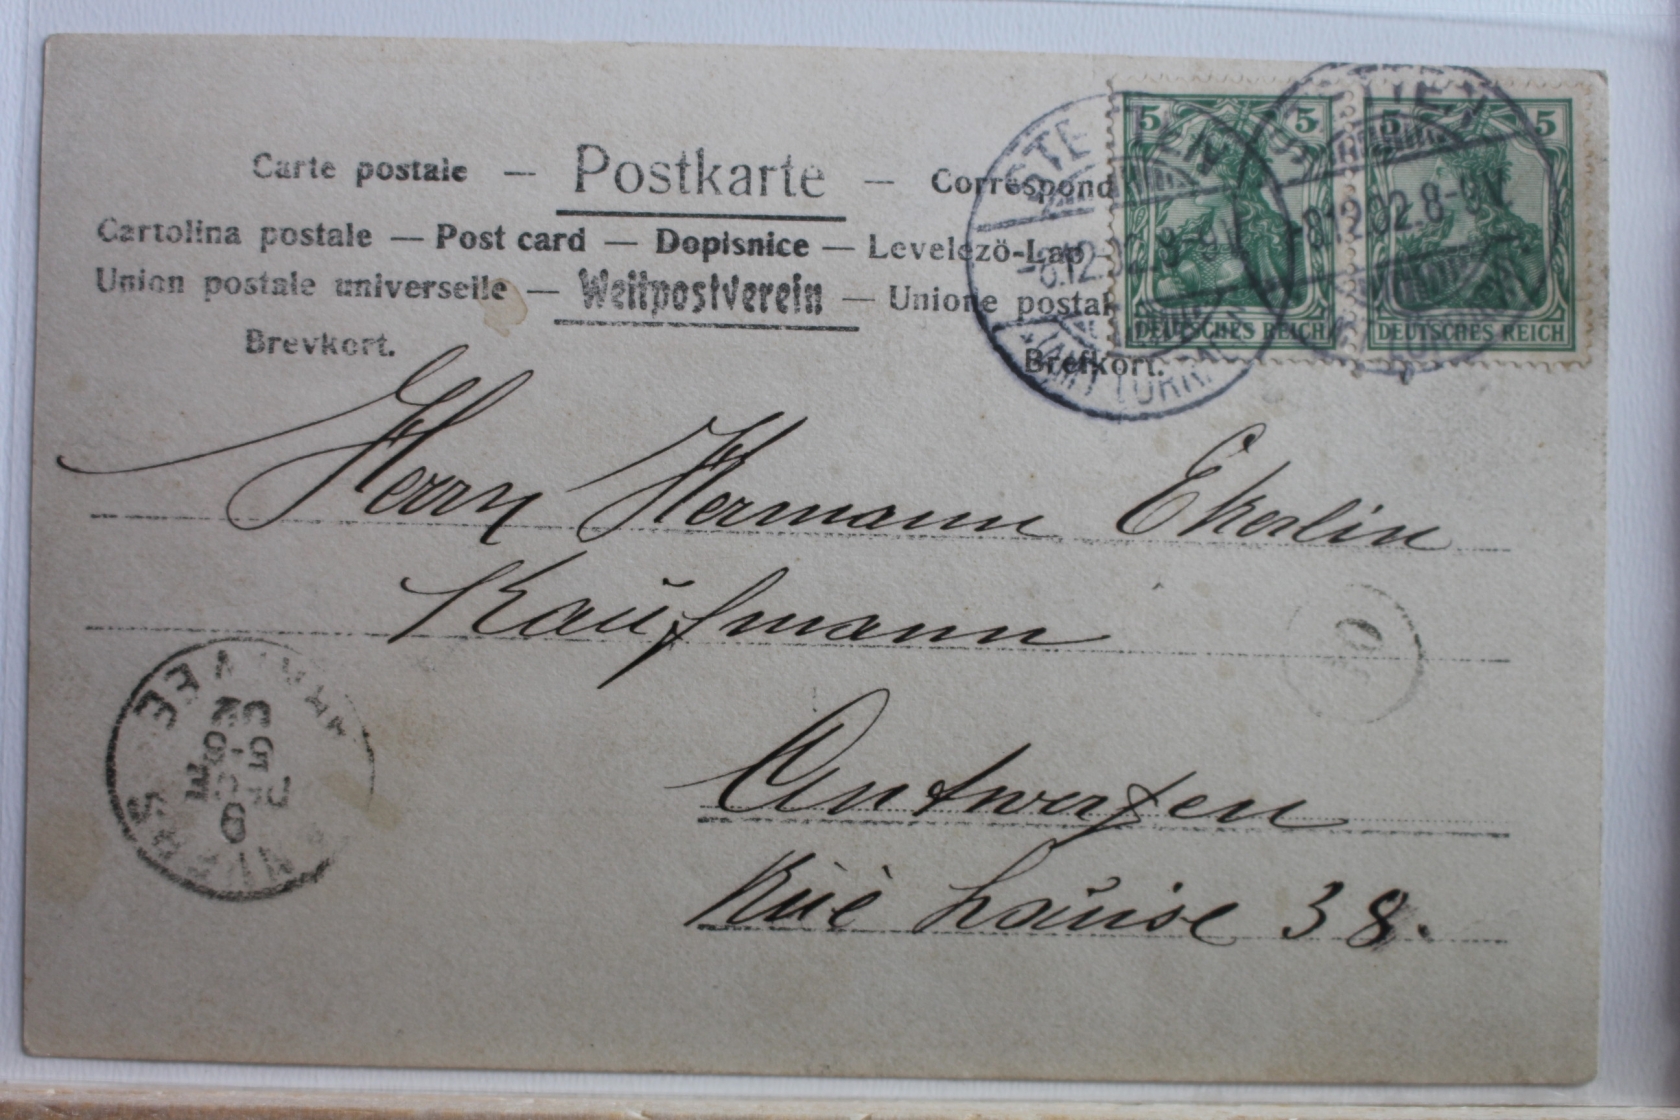 Carte postale — Postkarte — Correspond
Cartolina postale — Post card — Dopisnice — Levelező-Lap
Union postale universelle — Weltpostverein — Unione postal
Brevkort.
Brefkort.
5 5
DEUTSCHES REICH
5 5
DEUTSCHES REICH
STETTEN
-8.12.02.8-9V.
STETTEN
-8.12.02.8-9V.
(AMT LÖRRACH)
Herrn Hermann Ekerlin
Kaufmann
Antwerpen
Rue Louise 38.
ANVERS
9
DEC